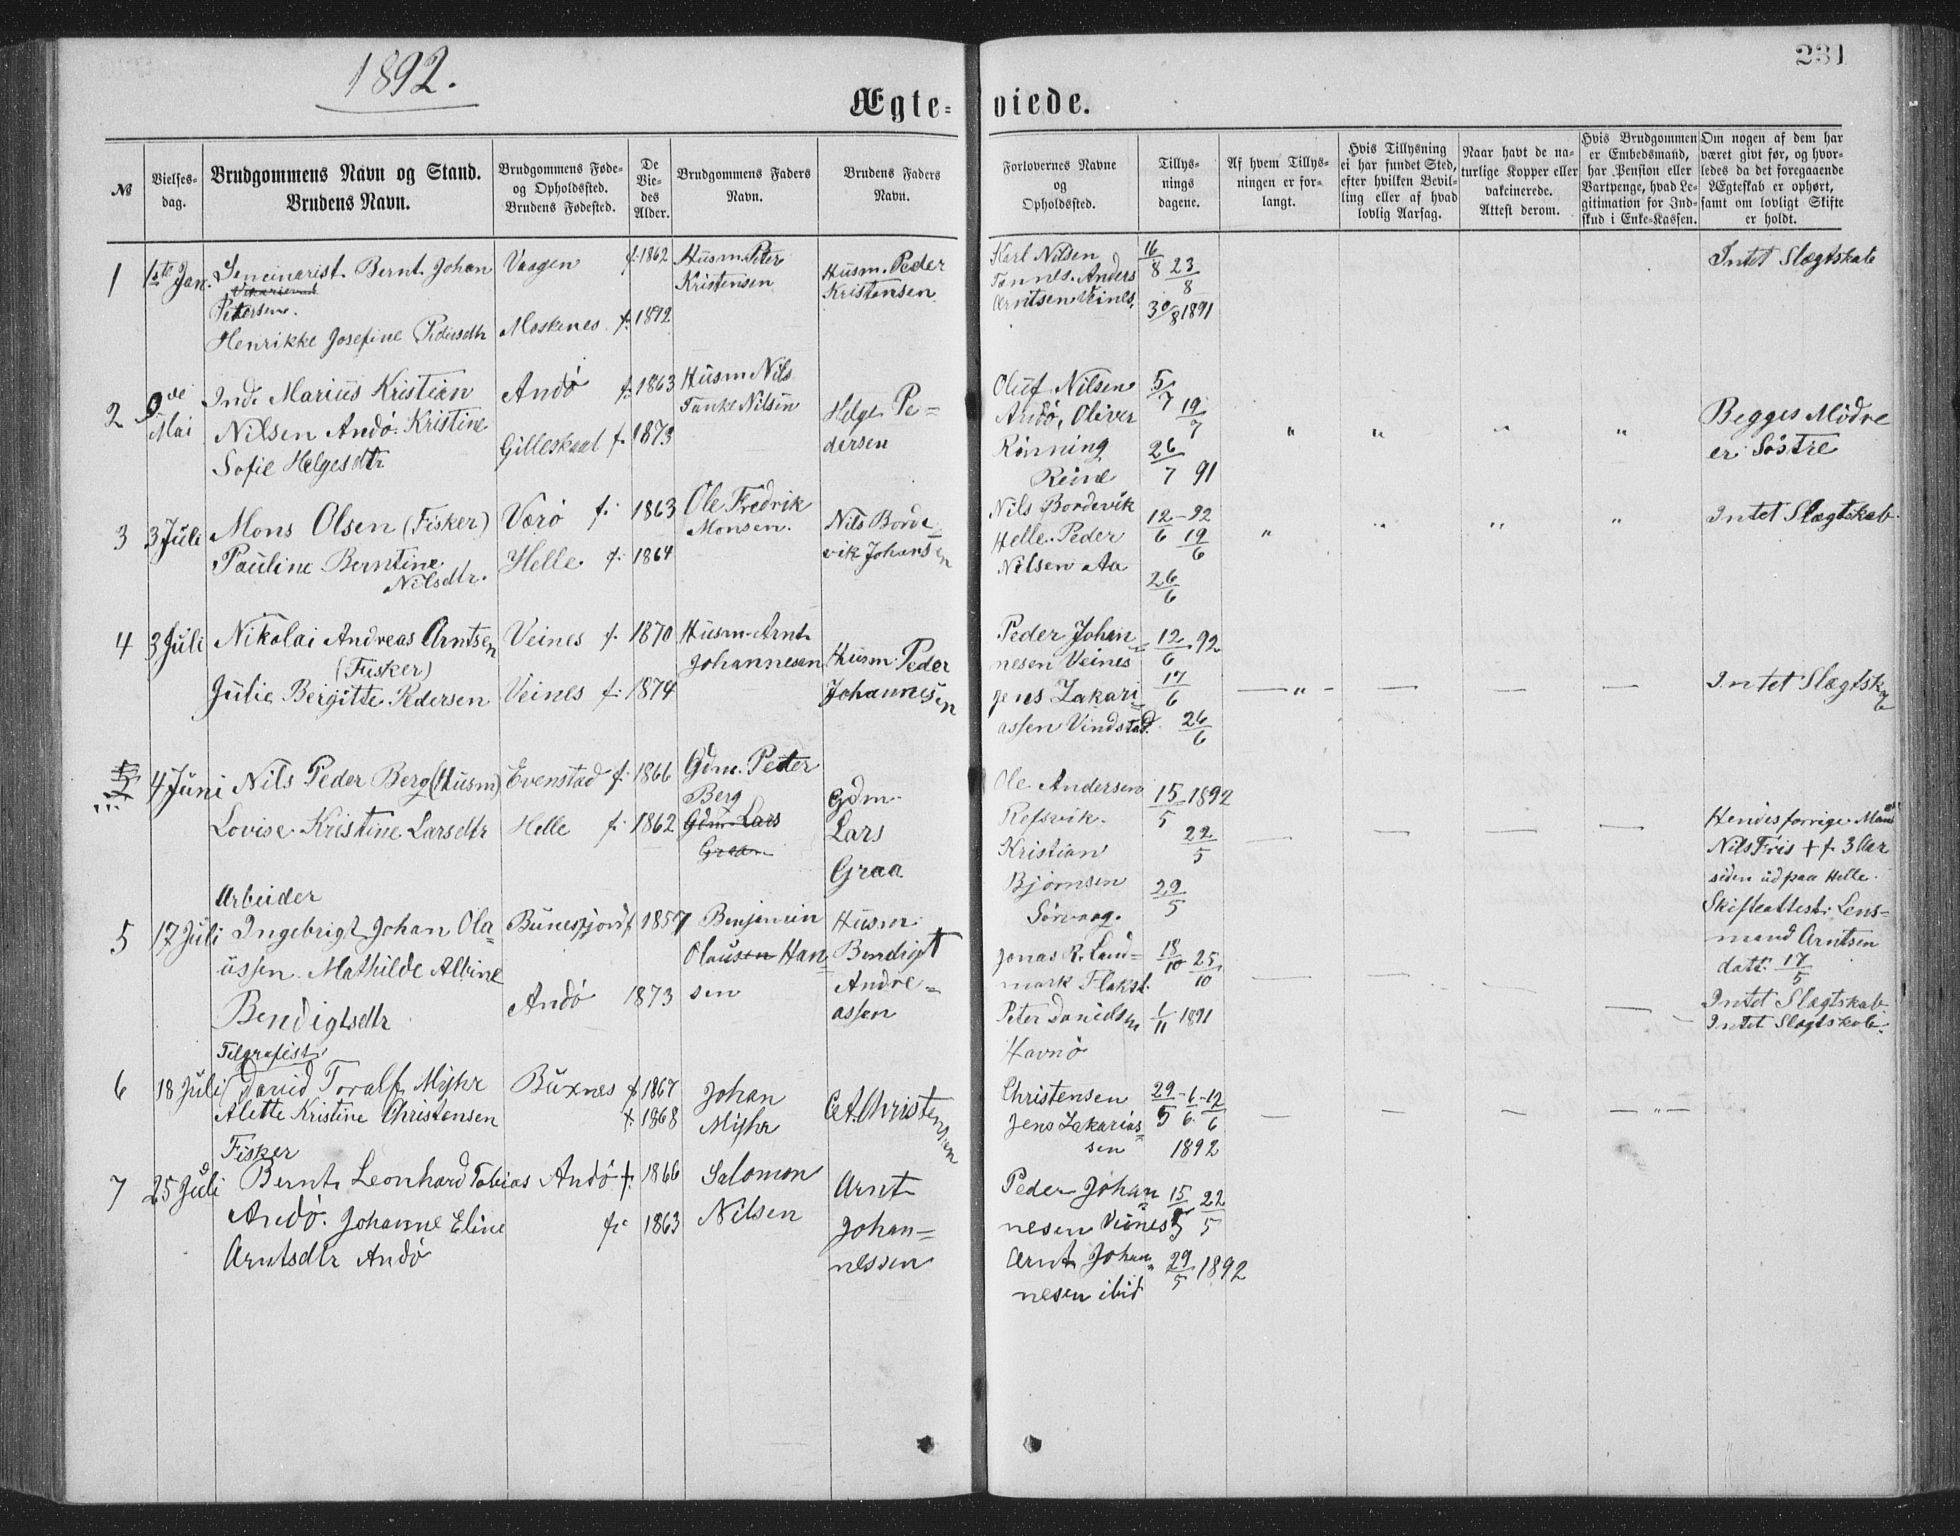 1892.
231
Ægte-
viede.
№
Vielses-
dag.
Brudgommens Navn og Stand.
Brudens Navn.
Brudgommens Føde-
og Opholdssted.
Brudens Fødested.
De
Vie-
des
Alder.
Brudgommens Faders
Navn.
Brudens Faders
Navn.
Forlovernes Navne
og
Opholdssted.
Tillys-
nings
dagene.
Af hvem Tillys-
ningen er for-
langt.
Hvis Tillysning
ei har fundet Sted,
efter hvilken Bevil-
ling eller af hvad
lovlig Aarsag.
Naar havt de na-
turlige Kopper eller
vakcinerede.
Attest derom.
Hvis Brudgommen
er Embedsmand,
har Pension eller
Vartpenge, hvad Le-
gitimation for Ind-
skud i Enke-Kassen.
Om nogen af dem har
været givt før, og hvor-
ledes da det foregaaende
Ægteskab er ophørt,
samt om lovligt Skifte
er holdt.
1
1ste Jan.
Seminarist Bernt Johan
Petersen.
Henrikke Josefine Pedersdtr
Vaagen
Moskenes
f. 1862
f. 1872
Husm. Peter
Kristensen
Husm. Peder
Kristensen
Karl Nilsen
Tannes. Anders
Arntsen Veines.
16/8 23/8
30/8 1891
Intet Slægtskab
2
9de
Mai
Ind. Marius Kristian
Nilsen Andö. Kristine
Sofie Helgesdtr
Andö
Gilleskaal
f. 1863
f. 1873
Husm Nils
Tanke Nilsen
Helge Pe-
dersen
Oluf Nilsen
Andö, Oliver
Rönning
Reine
5/7
19/7
26/7 91
" " " "
Begges Mödre
er Söstre
3
3 Juli
Mons Olsen (Fisker)
Pauline Berntine
Nilsdtr.
Værö
Helle
f. 1863
f. 1864
Ole Fredrik
Monsen.
Nils Borde
vik Johansen
Nils Bordevik
Helle. Peder
Nilsen Aa
12/6 - 92
19/6
26/6
" " " "
Intet Slægtskab.
4
3 Juli
Nikolai Andreas Arntsen
(Fisker)
Julie Beigitte Pedersen
Veines
Veines
f. 1870
f. 1874
Husm. Arnt
Johannesen
Husm. Peder
Johannesen
Peder Johan-
nesen Veines
Jens Zakari-
assen Vindstad.
12/6 92
17/6
26/6
— " — — — —
Intet Slægtskab
5
4 Juni
Nils Peder Berg (Husm)
Lovise Kristine Larsdtr
Evenstad
Helle
f. 1866
f. 1862
Gdm. Peter
Berg
Gdm. Lars
Graa
Gdm.
Lars
Graa
Ole Andersen
Refsvik.
Kristian
Bjørnsen
Sörvaag.
15/5 1892
22/5
29/5
— — — —
Hendes forrige Mand
Nils Fris + f. 3 Aar
siden ud paa Helle.
Skifteattest: Lens-
mand Arntsen
dat. 17/5
Intet Slægtskab
5
17 Juli
Arbeider
Ingebrigt Johan Ola-
ussen. Mathilde Albine
Bendigtsdtr
Bunesfjord
Andö
f. 1857
1873
Benjamin
Olausen Han-
sen
Husm.
Bendigt
Andre-
assen
Jonas R. Land-
mark Flakst.
Peter Danielsen
Havnö
18/10 25/10
1/11 1891
— — — —
Intet Slægtskab.
6
18 Juli
Telgrafist
David Toralf Myhr
Alette Kristine Christensen
Buxnes
f. 1867
f. 1868
Johan
Myhr
C. A. Christensen
Christensen
Jens Zakarias-
sen
29/5 - 6/6 - 12/6
1892
— — — — " —
7
25 Juli
Fisker
Bernt Leonhard Tobias
Andö. Johanne Eline
Arntsdtr Andö
Andö
f. 1866
f. 1863
Salomon
Nilsen
Arnt
Johan-
nessen
Peder Johan-
nesen Veines
Arnt Johan-
nesen ibid
15/5 22/5
29/5 1892